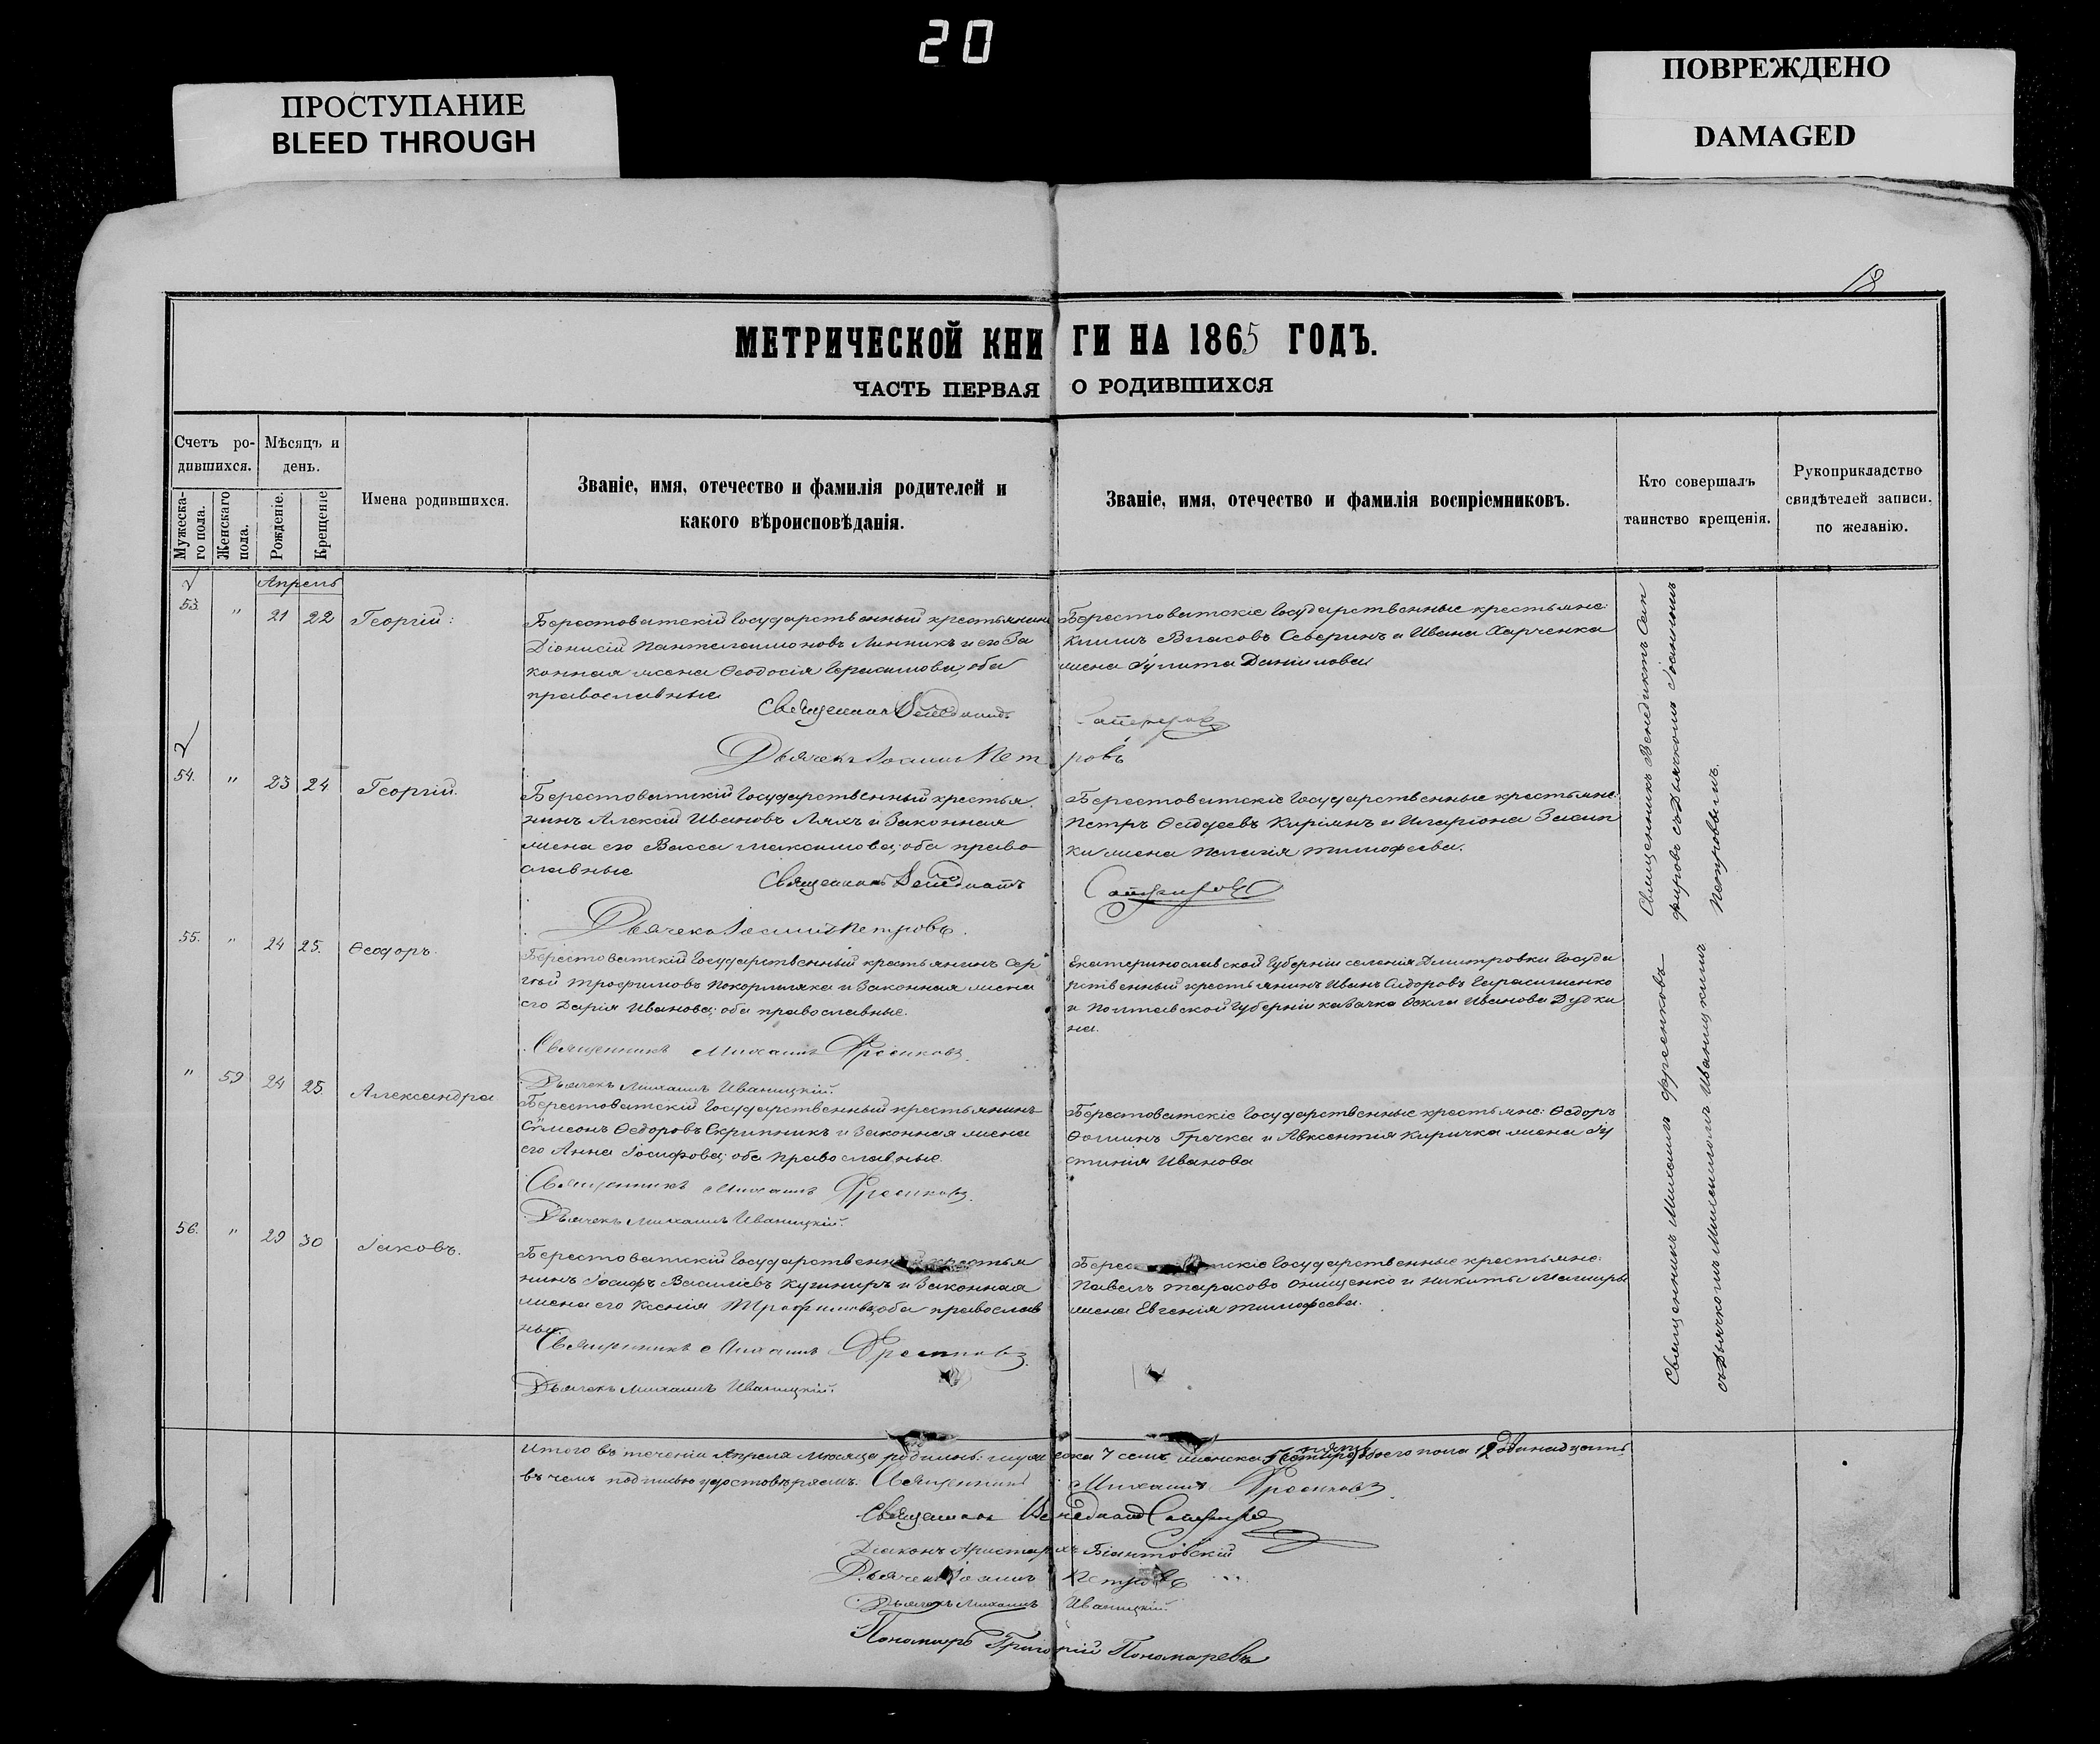 20
ПРОСТУПАНИЕ
BLEED THROUGH
ПОВРЕЖДЕНО
DAMAGED
18
МЕТРИЧЕСКОЙ КНИГИ НА 1865 ГОДЪ.
ЧАСТЬ ПЕРВАЯ О РОДИВШИХСЯ
Счетъ ро-
дившихся.
Мужеска-
го пола.
Женскаго
пола.
Мѣсяцъ и
день.
Рожденіе.
Крещеніе
Имена родившихся.
Званіе, имя, отечество и фамилія родителей и
какого вѣроисповѣданія.
Званіе, имя, отечество и фамилія воспріемниковъ.
Кто совершалъ
таинство крещенія.
Рукоприкладство
свидѣтелей записи.
по желанію.
Апрель
53. " 21 22 Георгій:
Берестоватскій Государственный крестьянинъ
Діонисій Пантелеимоновъ Линникъ и его За
конная жена Ѳеодосія Герасимова, оба
православные
Берестоватскіе Государственные крестьяне:
Климъ Власовъ Северинъ и Ивана Харченка
жена Іулита Даніилова
Священникъ Венедиктъ Сапфировъ
Дьячекъ Іоаннъ Петровъ
54. " 23 24 Георгій.
Берестоватскій Государственный крестья
нинъ Алексій Ивановъ Ляхъ и Законная
жена его Васса Максимова; оба право
славные
Берестоватскіе Государственные крестьяне:
Петръ Ѳаддеевъ Киріянъ и Иларіона
жена Пелагія Тимофеева.
Священникъ Венедиктъ Сапфировъ
Дьячекъ Іоаннъ Петровъ.
55. " 24 25. Ѳеодоръ.
Берестоватскій Государственный крестьянинъ Сер
гѣй Трофимовъ Покормляка и Законная жена
его Дарія Иванова; оба православные.
Екатеринославской Губерніи селенія Дмитровки Госуда
рственный крестьянинъ Иванъ Сидоровъ Герасименко
и Полтавской Губерніи казачка Ѳекла Иванова Дудки
на.
Священникъ Михаилъ Фрсенковъ.
Дьячекъ Михаилъ Иваницкій.
" 59 24 25. Александра
Берестоватскій Государственный крестьянинъ
Сѵмеонъ Ѳедоровъ Скрипникъ и Законная жена
его Анна Іосифова; оба православные
Берестоватскіе Государственные крестьяне: Ѳедоръ
Ѳоминъ Гречка и Авксентія Киричка жена Іу
стинія Иванова
Священникъ Михаилъ
Дьячекъ Михаилъ Иваницкій.
56. " 29 30 Іаковъ.
Берестоватскій Государственный крестья
нинъ Іосифъ Василіевъ Кушниръ и Законная
жена его Ксенія Трофимова; оба православ
ные.
Павелъ Тарасовъ Онищенко и Никиты
жена Евгенія Тимофеева.
Священникъ Михаилъ
Дьячекъ Михаилъ Иваницкій.
Священникъ Венедиктъ Сап
фировъ съ Дьячкомъ Іоанномъ
Петровымъ.
Священникъ Михаилъ
съ Дьячкомъ Михаиломъ Иваницкимъ
Итого въ теченіи Апреля месяца родилось: мужеска 7 семь женска 5 пять обоего пола 12
въ чемъ подписью удостовѣряемъ: Священникъ Михаилъ
Священникъ Венедиктъ Сапфировъ
Діаконъ Аристархъ
Дьячекъ Іоаннъ Петровъ
Дьячекъ Михаилъ Иваницкій.
Пономарь Григорій Пономаревъ